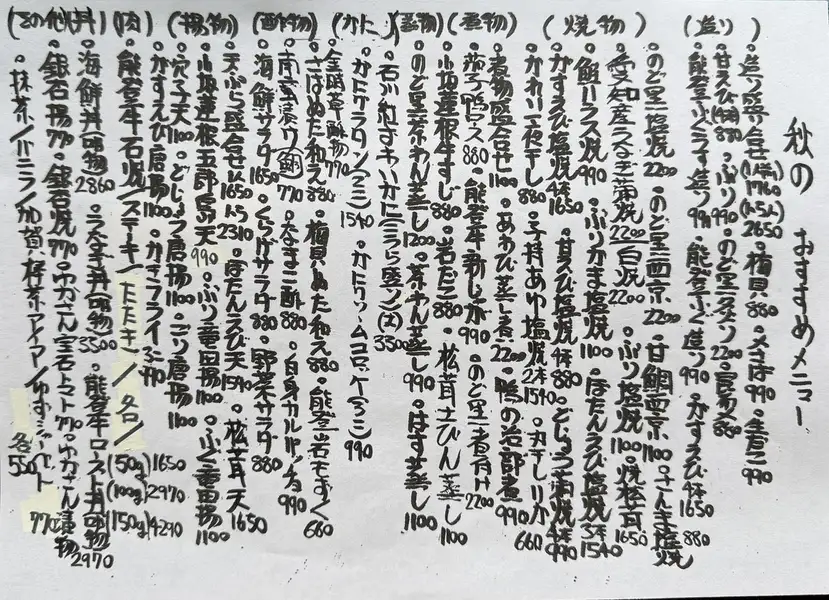 秋の おすすめメニュー
(造り)
・造り盛合せ(1人前)1760 (2人前)2650 ・梅貝880 ・〆さば990 ・生だこ990
・甘えび(4本)880 ・ぶり990 ・のど黒炙り2200 ・貝 880
・能登ふぐうす造り990 ・能登ふぐ造り990 ・がすえび4本1650
(焼物)
・のど黒塩焼2200 ・のど黒西京2200 ・甘鯛西京1100 ・さんま塩焼880
・愛知産うなぎ蒲焼2200/白焼2200 ・ぶり塩焼1100 ・焼松茸1650
・鮭ハラス焼990 ・ぶりかま塩焼1100 ・ぼたんえび塩焼3本1540
・がすえび塩焼4本1650 ・甘えび塩焼4本880 ・どじょう蒲焼4本990
・かれい一夜干し880 ・子持あゆ塩焼2本1540 ・丸干しいか660
(煮物)
・煮物盛合せ1100 ・あわび蒸し煮2200 ・鴨の治部煮990
・茄子鴨ロース880 ・能登牛新じゃが990 ・のど黒煮付け2200
・小坂蓮根牛すじ880 ・岩だこ880 ・松茸土びん蒸し1100
(蒸物)
・のど黒茶わん蒸し1200 ・茶わん蒸し990 ・はす蒸し1100
(かに)
・石川産ずわいかに 盛り(大)3300
・かにグラタン(ミニ)1540 ・かにクリームコロッケ(2コ)990
(酢物)
・金時草酢物770
・さばぬた和え880 ・梅貝ぬた和え880 ・能登岩もずく660
・南蛮漬け 770 ・なまこ酢880 ・白身カルパッチョ990
・海鮮サラダ1650 ・くらげサラダ880 ・野菜サラダ880
(揚物)
・天ぷら盛合せ1人1650 2人2310 ・ぼたんえび天1540 ・松茸天1650
・小坂蓮根五郎島天990 ・ぶり竜田揚1100 ・ふぐ竜田揚1100
・穴子天1100 ・どじょう唐揚1100 ・ごり唐揚1100
・がすえび唐揚1100 ・かきフライ3コ990
(肉)
・能登牛石焼/ステーキ/たたき/各/(50g)1650 (100g)2970 (150g)4290
(その他丼)
・海鮮丼(吸物)2860 ・うなぎ丼(吸物)3300 ・能登牛ロースト丼(吸物)2970
・銀石揚770 ・銀石焼770 ・中力さん宝石トマト770 ・中力さん漬物770
・抹茶/バニラ/加賀棒茶アイス/ゆずシャーベット 各550